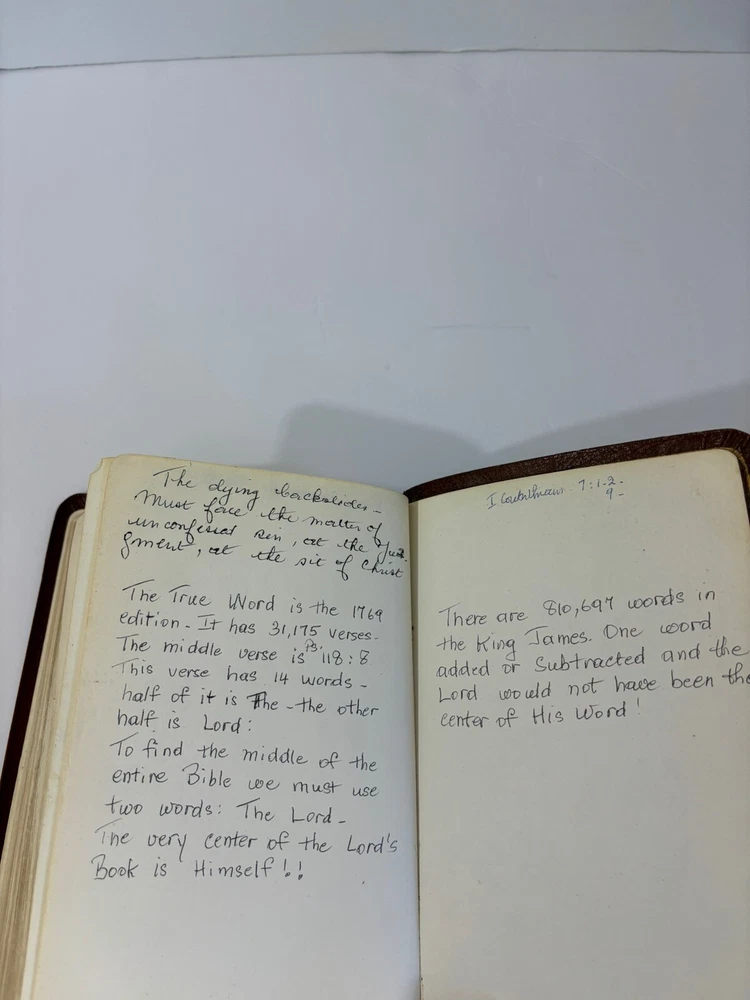 The dying backslider -
Must face the matter of
unconfessed sin, at the jud-
gment, at the sit of Christ
The True Word is the 1769
edition - It has 31,175 verses -
The middle verse is Ps. 118:8
This verse has 14 words -
half of it is The - the other
half is Lord:
To find the middle of the
entire Bible we must use
two words: The Lord -
The very center of the Lord's
Book is Himself!!
I Corinthians 7:1-2-
9-
There are 810,697 words in
the King James. One word
added or Subtracted and the
Lord would not have been the
center of His Word!